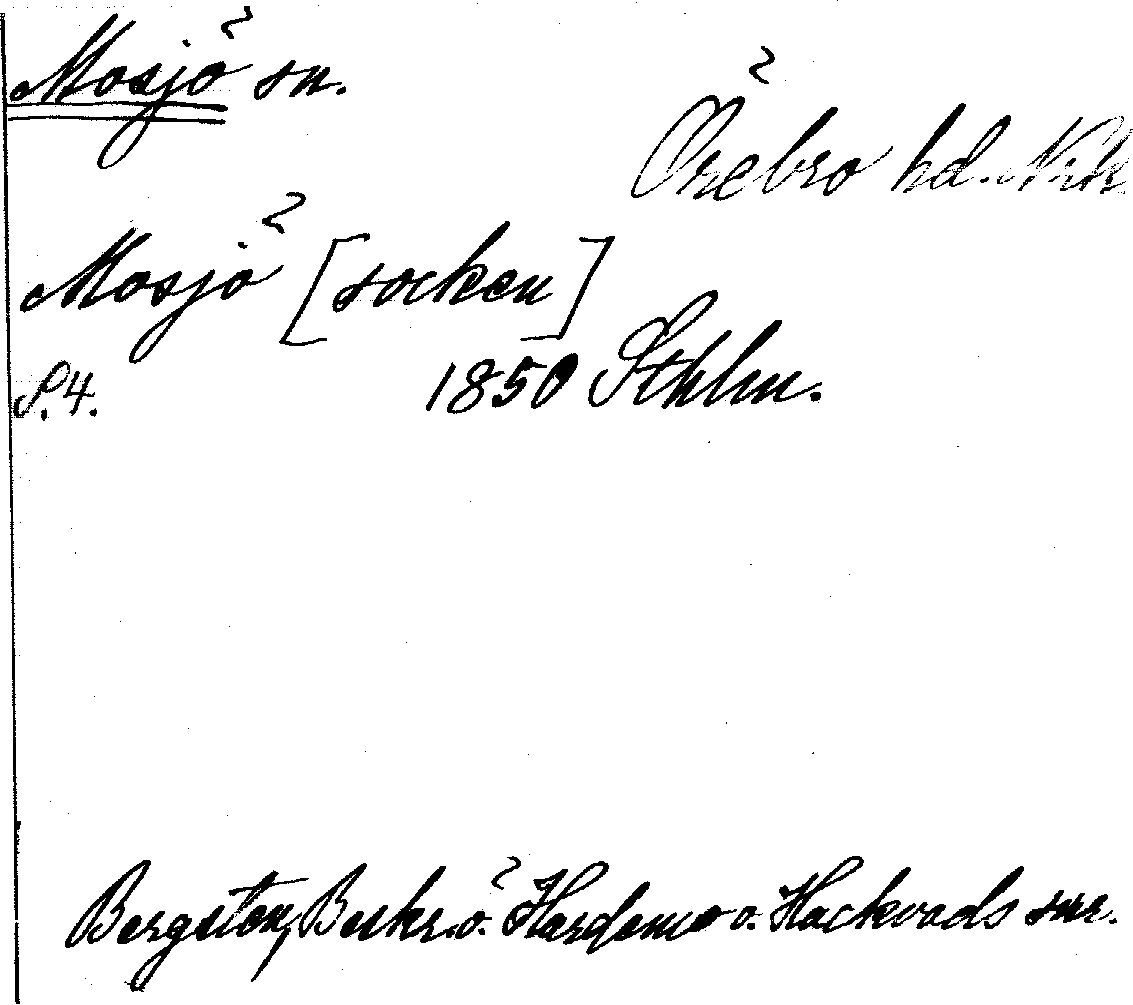 Mosjö sn.
Örebro hd. Nrk
Mosjö [socken]
S. 4. 1850 Sthlm.
Bergsten, Beskr. ö. Hardemo o. Hackvads snr.